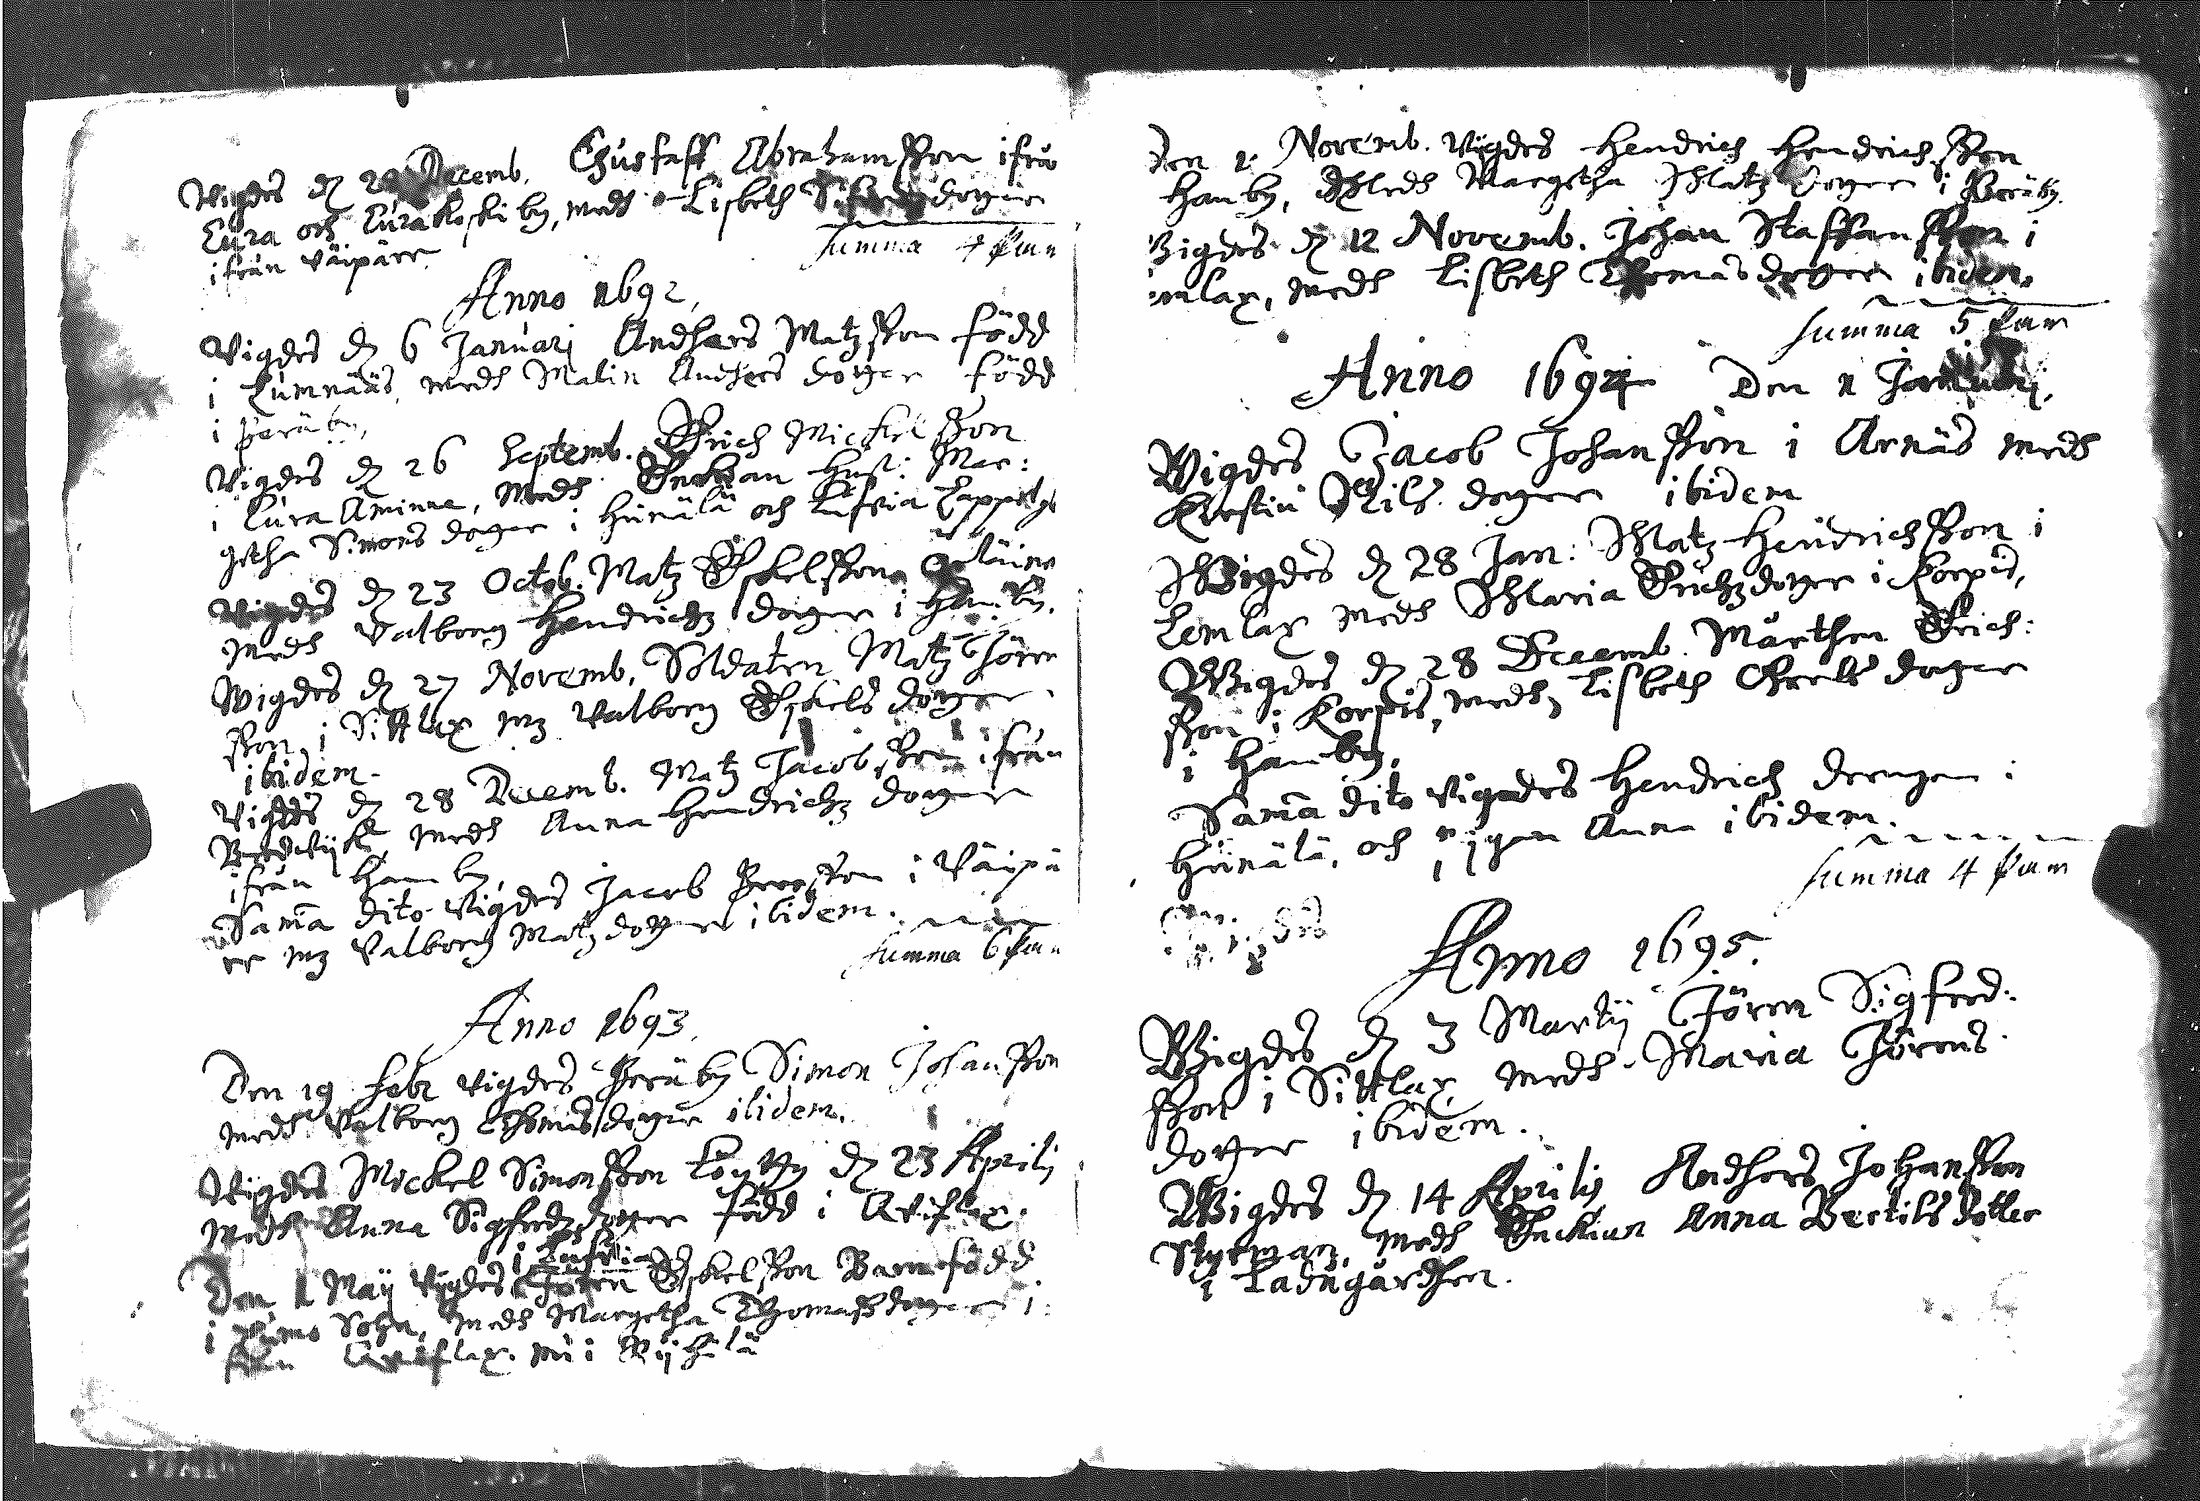 Vigdes dn 28 Decemb. Gustaff Abrahamsson ifrån
Lura och Lurakoski by, medh Lisbeth dotter
ifrån Väipäre.
Summa 4 Paar
Anno 1692,
Vigdes dn 6 Januarj Anders Matzson född
i Lumnäs, medh Malin Anders dotter född
i Peräby,
Vigdes dn 26 Septemb. Erich Mickelson
i Lura Åminne, medh Enkian Hust: Mar:
getha Simons dotter i Hünälä och
Vigdes dn 23 Octob. Matz Eskelson
medh Valborg Hendrichz dotter i Hamby.
Vigdes dn 27 Novemb. Soldaten Matz Jören
son i Sittlax mz Valborg Eskels dotter
ibidem.
Vigdes dn 28 Decemb. Matz Jacobson ifrån
medh Anna Hendrichz dotter
ifrån Hamby
Sama dito Vigdes Jacob Person i Väipä
re mz Valborg Matzdotter ibidem.
Summa 6 Paar
Anno 1693.
Den 19 Febr vigdes Peräby Simon Johanson
medh Valborg Thomasdotter ibidem.
Vigdes Mickel Simonsson dn 23 Aprilij
medh Anna Sigfredzdotter född i Aviflax.
i
Den 1 Maij Vigdes Jören Eskelson Barnfödd
i Pämo Sohn, medh Margetha Thomasdotter i
från Aviflax. nu i
Den 1. Novemb. Vigdes Hendrich Hendrichson
Hamby, Medh Margetha Matzdotter i Peräby.
Vigdes dn 12 Novemb. Johan Staffanson i
emlax, medh Lisbeth Thomasdotter ibidem.
Summa 5 Paar
Anno 1694 Den 1 Januarj,
Vigdes Jacob Johanson i Arnäs medh
Kirstin Nils dotter ibidem
Vigdes dn 28 Jan: Matz Hendrichson i
Lemlax medh Maria Erichzdotter i Korpis,
Vigdes dn 28 Decemb. Mårthen Erich:
son i Korpis, medh Lisbeth Grels dotter
i Hamby.
Sama dito Vigdes Hendrich drengen i
Hünälä, och pigan Anna ibidem.
Summa 4 Paar
Anno 1695.
Vigdes dn 3 Martij Jören Sigfred:
son i Sittlax, medh Maria Jörens
dotter ibidem.
Vigdes dn 14 Aprilis Anders Johanson
Styrman, medh Enckian Anna Bertils dotter
i Ladugården.